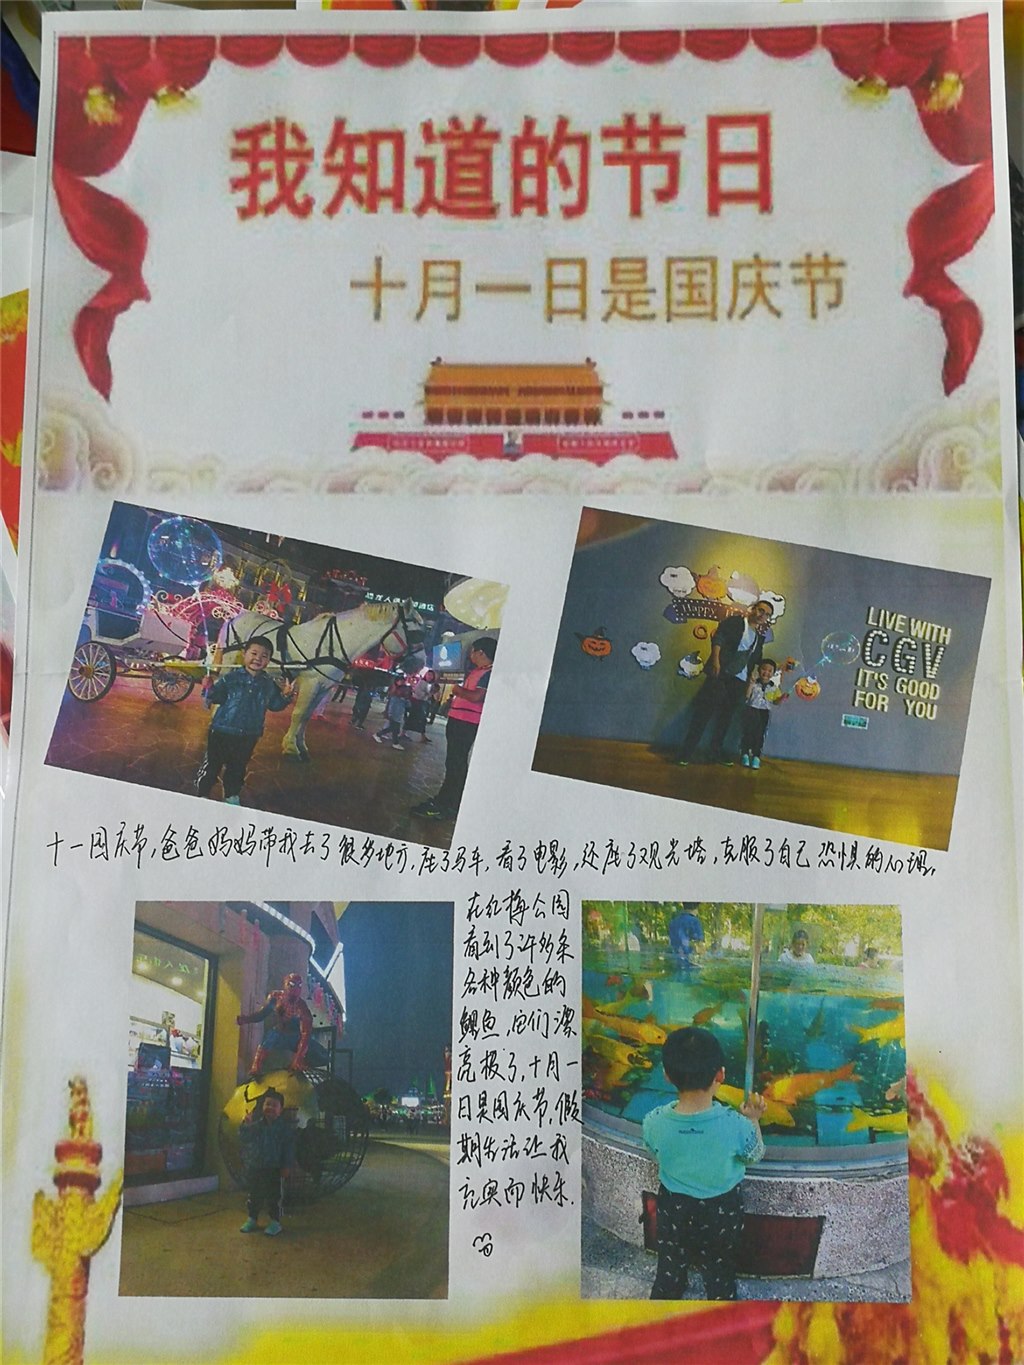 我知道的节日
十月一日是国庆节
LIVE WITH
CGV
IT'S GOOD
FOR YOU
十一国庆节,爸爸妈妈带我去了很多地方,座了马车,看了电影,还座了观光塔,克服了自己恐惧的心理。
在红梅公园
看到了许多条
各种颜色的
鲤鱼,它们漂
亮极了,十月一
日是国庆节,假
期生活让我
充实而快乐.